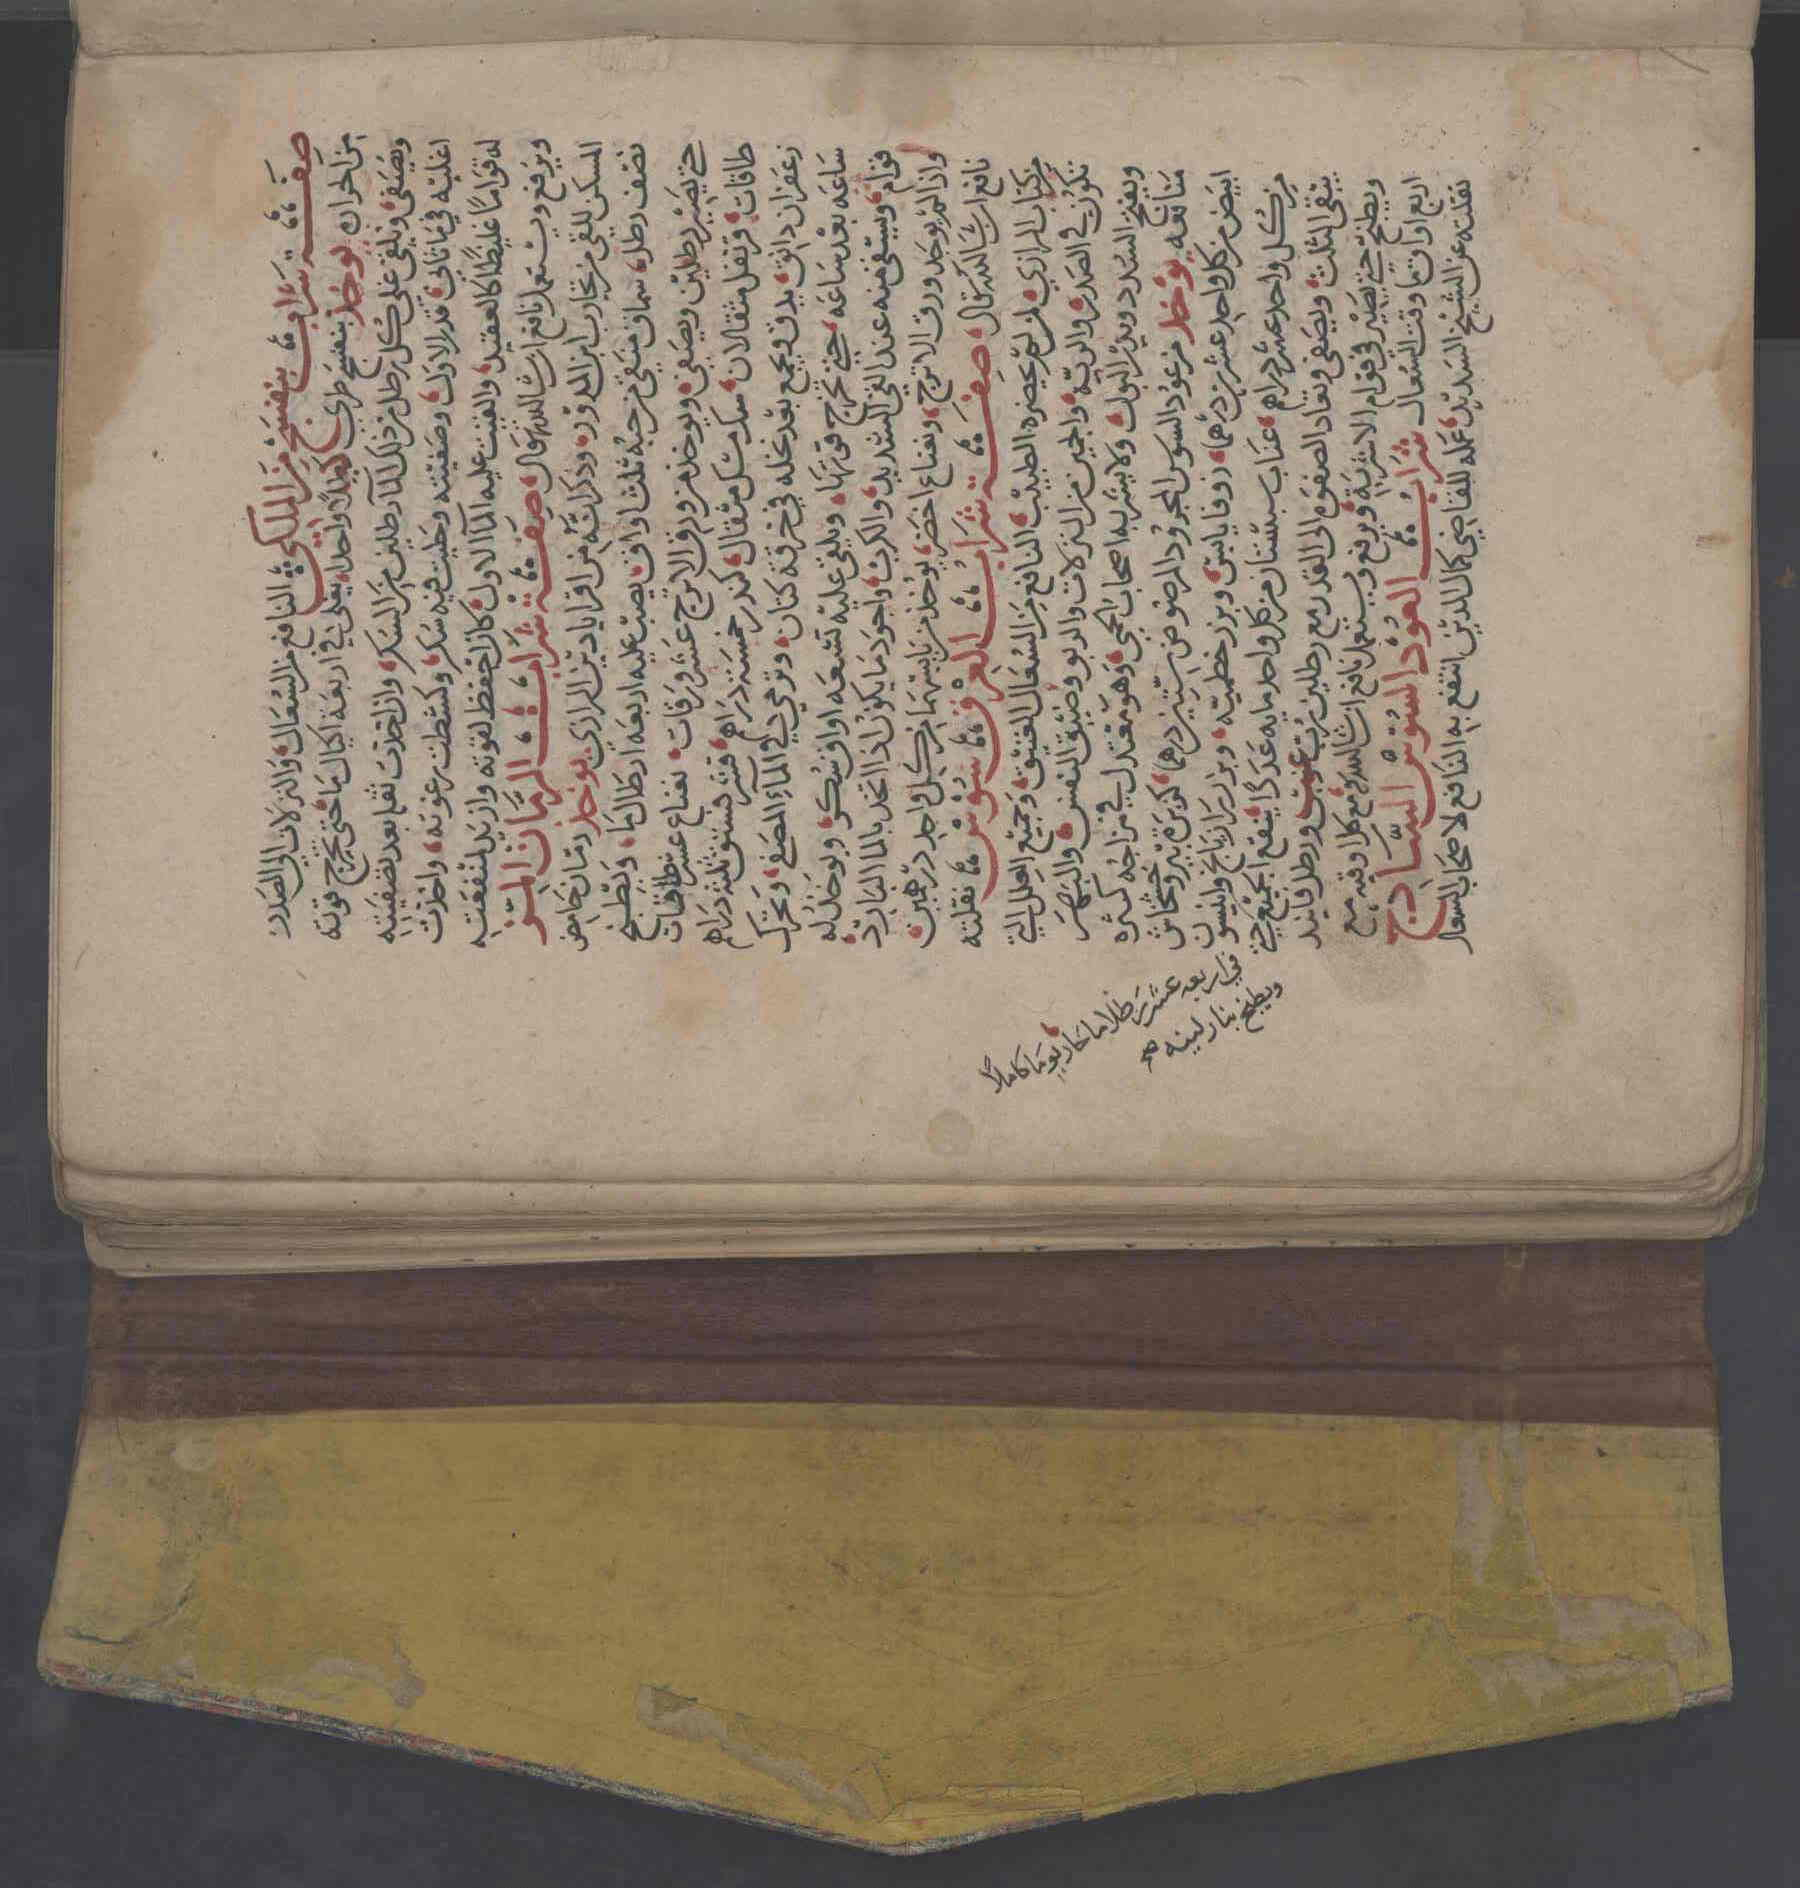 صفة شراب بنفسج من الملكي النافع من السعال والنزلات الى الصدر
من الحرارة يوخذ بنفسج طري كيلا واحدا يغلى في اربعة اكيال ما حتى تخرج قوته
ويصفى ويلقى على كل رطل من ذلك الما رطلين من السكر واذا اخذت ثفله بعد تصفيته
اغليته في ما ثاني قدر الاول وصفيته وحطيت فيه سكر وكشطت رغوته واخذت
له قواما غليظا كالعقيد والقيت عليه الما الاول كان احفظ لقوته وازيد لمنفعته
ويرفع ويستعمل نافع ان شا الله تعالى صفة شراب الرمان المز
المسكن للقى من تجارب ابن المدور وذكر انه من اقراباذين الرازي يوخذ رمان حامض
نصف رطل سماق منقى من حبه ثلث اواق يصب عليه اربعة ارطال ما ويطبخ
حتى يصير رطلين ويصفى ويوخذ من ورق الاترج عشر ورقات نعناع عشر طاقات
طاقات قرنفل مثقالان سك مسك مثقال كندر خمسة دراهم قشر فستق ثلثة دراهم
زعفران دانق يدق ويجمع بعد نخله في خرقة كتان وترمى في الماء المصفى وتحرك
ساعة بعد ساعة حتى تخرج قوتها ويلقى عليه تسعة اواق سكر ويوخذ له
قوام ويسقى منه عند القى الشديد والكرب واجود ما يكون اذا اتخذ بالما البارد
واذا لم يوجد ورق الاترج ونعناع اخضر يوخذ من يابسهما من كل واحد درهمين
نافع ان شا الله تعالى صفة شراب العرق سوس نقلته
من كتاب الرازي لمن لم يحضره الطبيب النافع من السعال العتيق وجميع العلل التي
تكون في الصدر والرية والجبين من النزلات والربو وضيق النفس والبهر
ويفتح السدد ويدر البول ولا يشربه اصحاب الحمى وهو معتدل في مزاجه كثره
منافعه يوخذ من عود السوس المجرود المرضوض ستين درهما كزبرة بير وخشخاش
ابيض من كل واحد عشرين درهما زوفا يابس وبزر خطمية وبزر رازيانج وانيسون
من كل واحد عشر دراهم عناب سبستان من كل واحد مايه عددا ينقع الجميع حتى
في اربعه عشر رطلا ما حار يوما كاملا
ويطبخ بنار لينه صح
يبقى الثلث ويصفى ويعاد الصفو الى القدر مع رطلين رب عنب ورطل فانيد
ويطبخ حتى يصير في قوام الاشربة ويرفع ويستعمل نافع ان شا الله مع كل اوقيه مع
اربع اواق ما وقت السعال شراب العود السوس الساذج
نقلته عن الشيخ السديد عمله للقاضي كمال الدين انتفع به النافع لاصحاب السعال